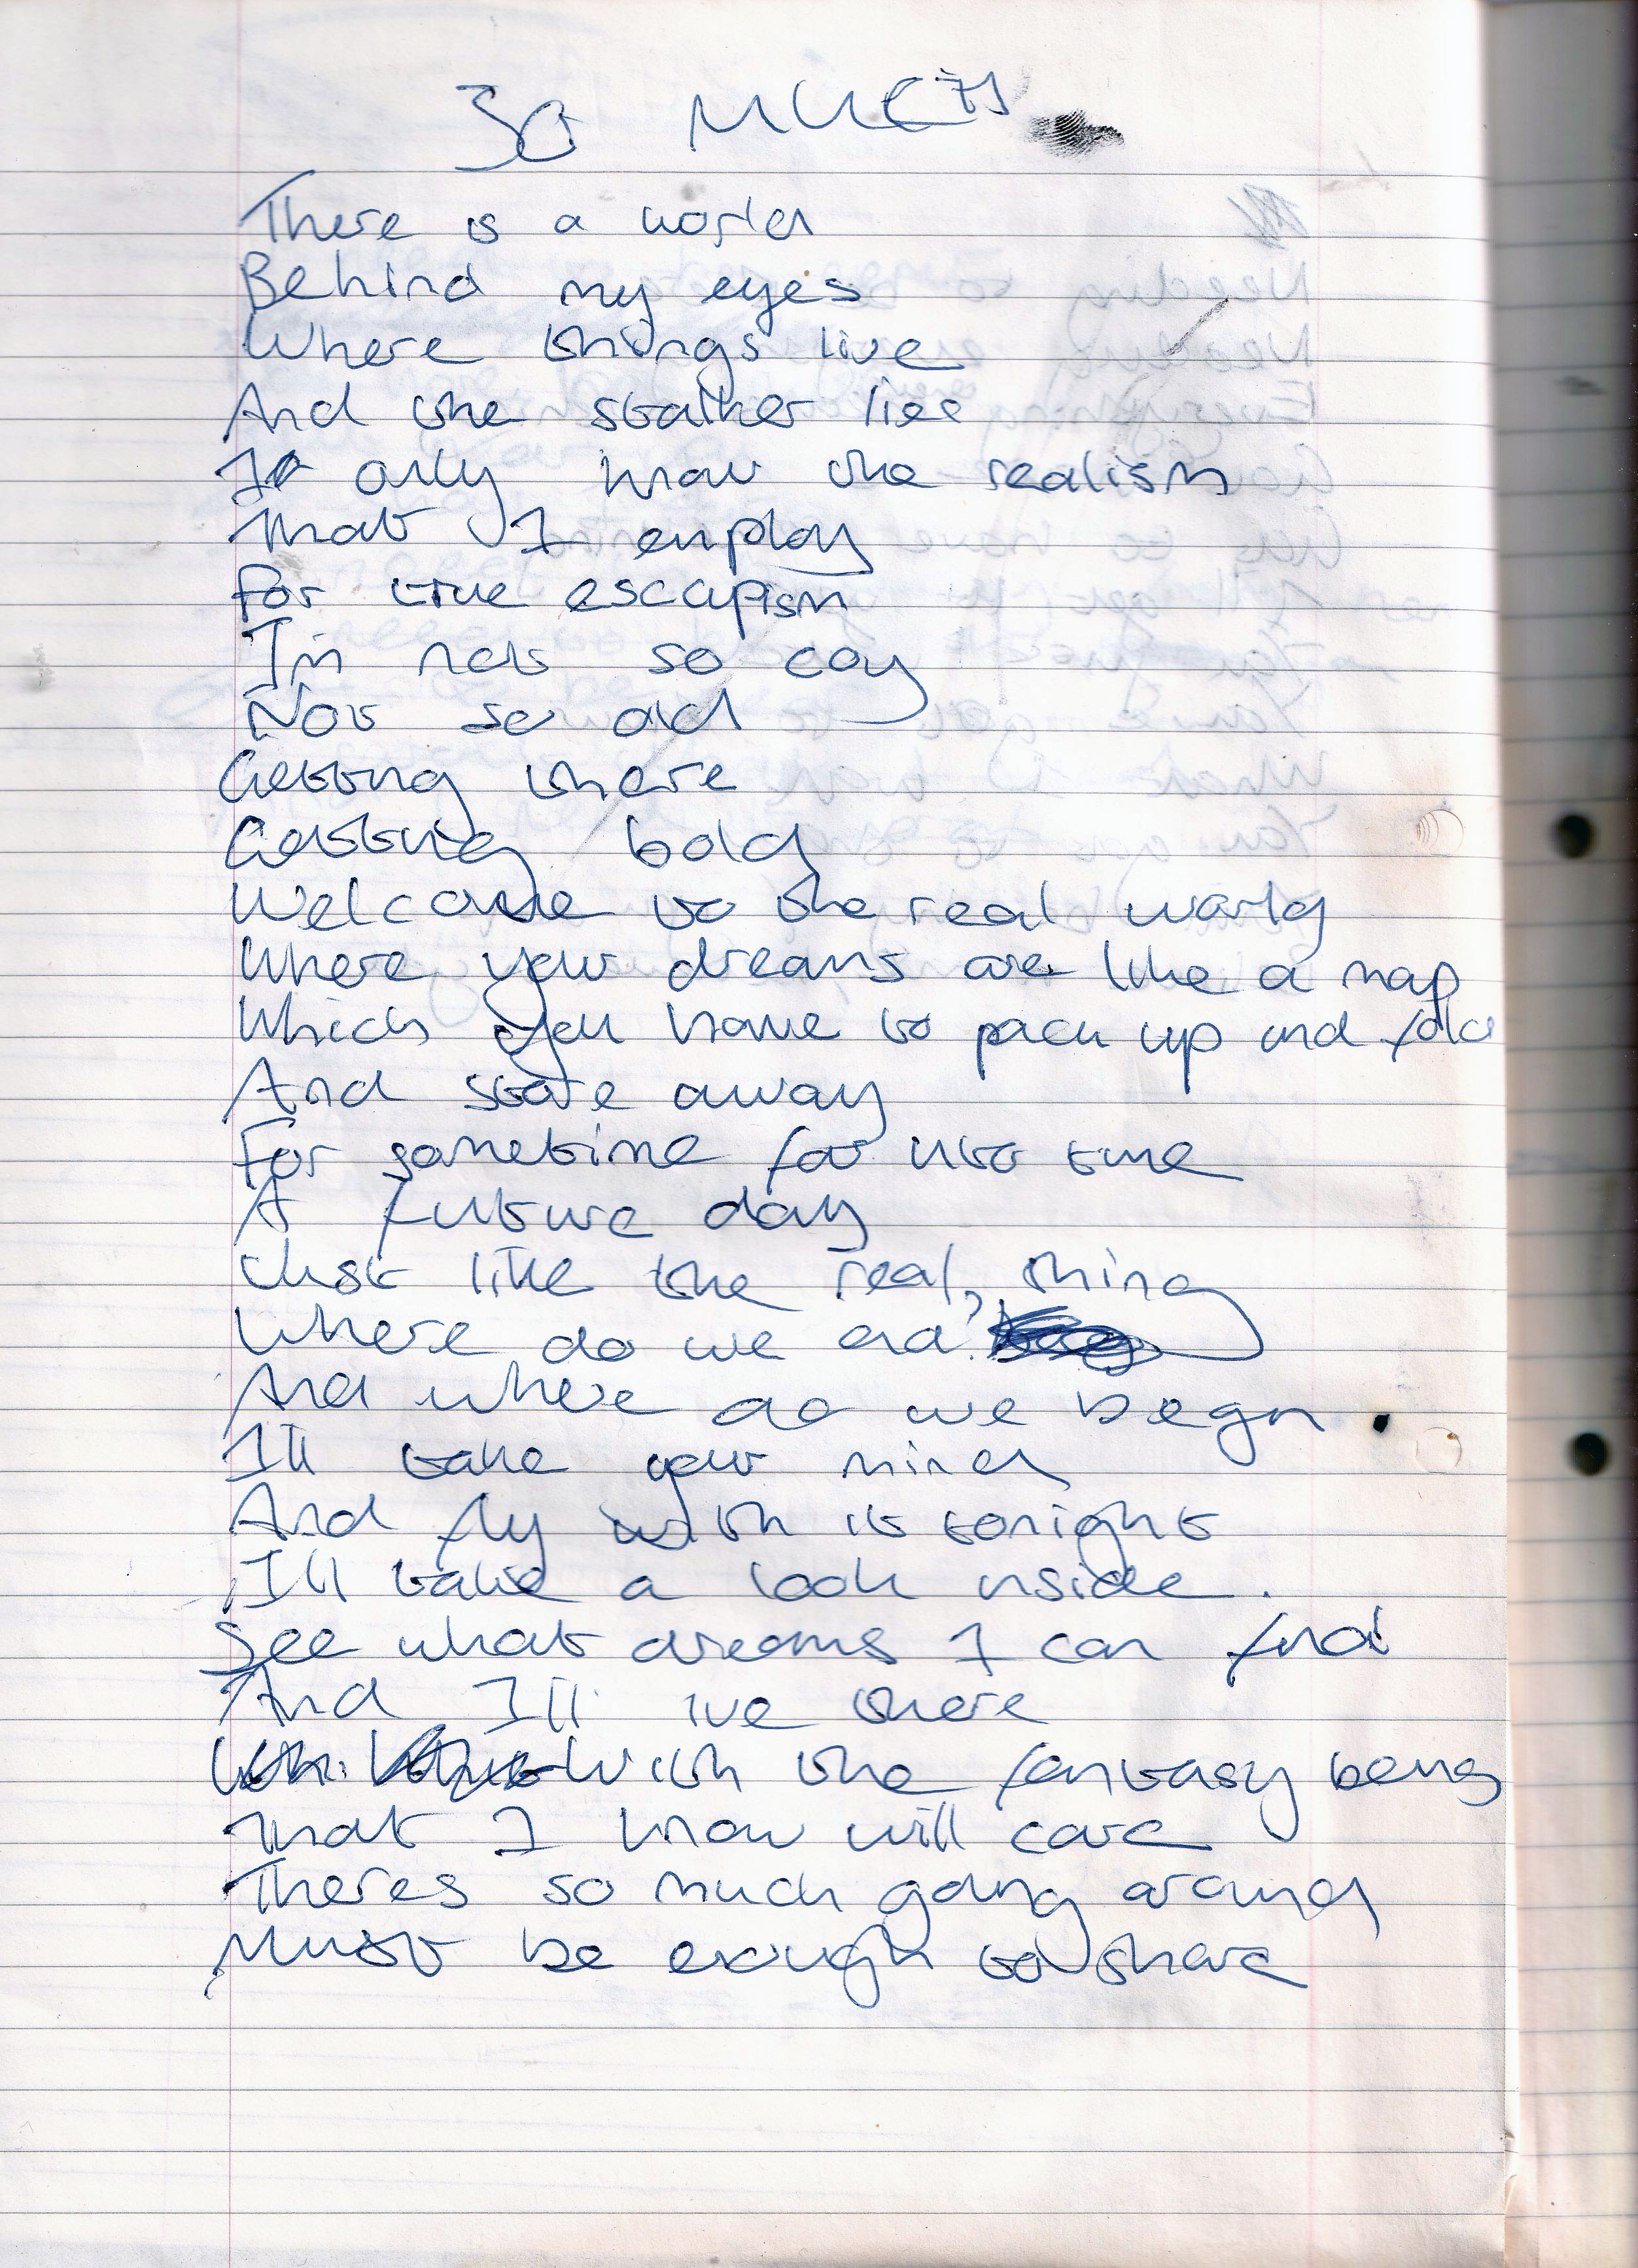 SO MUCH
There is a world
Behind my eyes
Where things live
And the stalker lies
If only know the realism
That I employ
For true escapism
I'm not so coy
Not so old
Getting there
Getting bold
Welcome to the real world
Where your dreams are like a map
Which you have to pack up and fold
And store away
For sometime for
A future day
Just like the real thing
Where do we end?
And where do we begin
I'll take your mind
And fly with it tonight
I'll take a look inside.
See what dreams I can find
And I'll live there
With the fantasy being
That I know will care
Theres so much going around
Must be enough to share